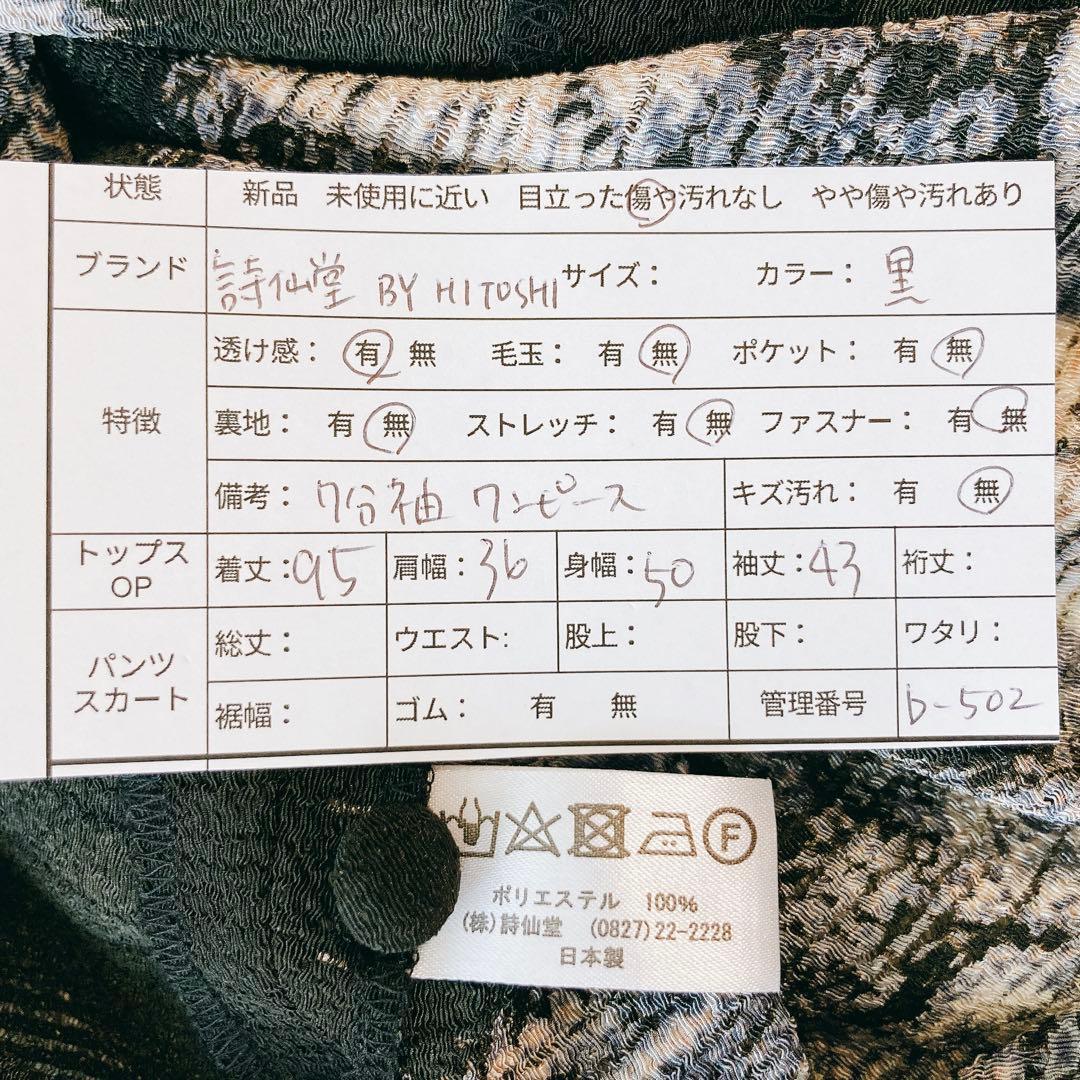 状態 新品 未使用に近い 目立った傷や汚れなし やや傷や汚れあり
ブランド 詩仙堂 BY HITOSHI サイズ： カラー： 黒
特徴
透け感： 有 無 毛玉： 有 無 ポケット： 有 無
裏地： 有 無 ストレッチ： 有 無 ファスナー： 有 無
備考： 7分袖 ワンピース キズ汚れ： 有 無
トップス OP 着丈：95 肩幅：36 身幅：50 袖丈：43 裄丈：
パンツ スカート
総丈： ウエスト: 股上： 股下： ワタリ：
裾幅： ゴム： 有 無 管理番号 b-502
F
ポリエステル 100%
(株)詩仙堂 (0827)22-2228
日本製